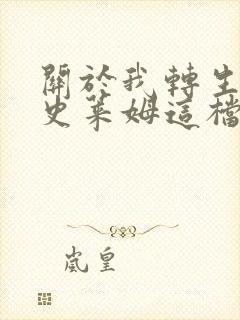 關於我轉生
史萊姆這檔
嵐皇